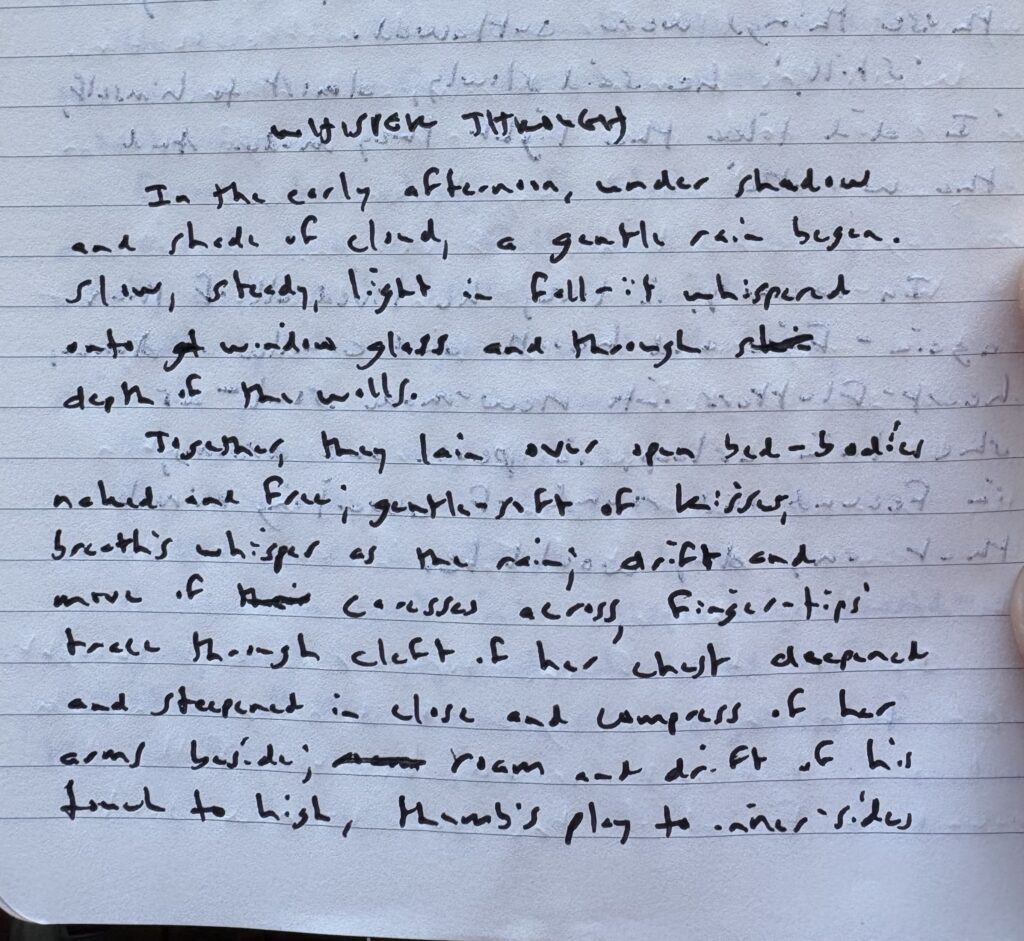 WHISPER THROUGH
In the early afternoon, under shadow
and shade of cloud, a gentle rain began.
Slow, steady, light in fall-it whispered
onto window glass and through
depth of the walls.
Together, they lain over open bed-bodies
naked and free; gentle-soft of kisses,
breath's whisper as the rain; drift and
move of their caresses across, finger-tips'
trace through cleft of her chest deepened
and steepened in close and compress of her
arms beside; roam and drift of his
touch to high, thumb's play to inner-sides